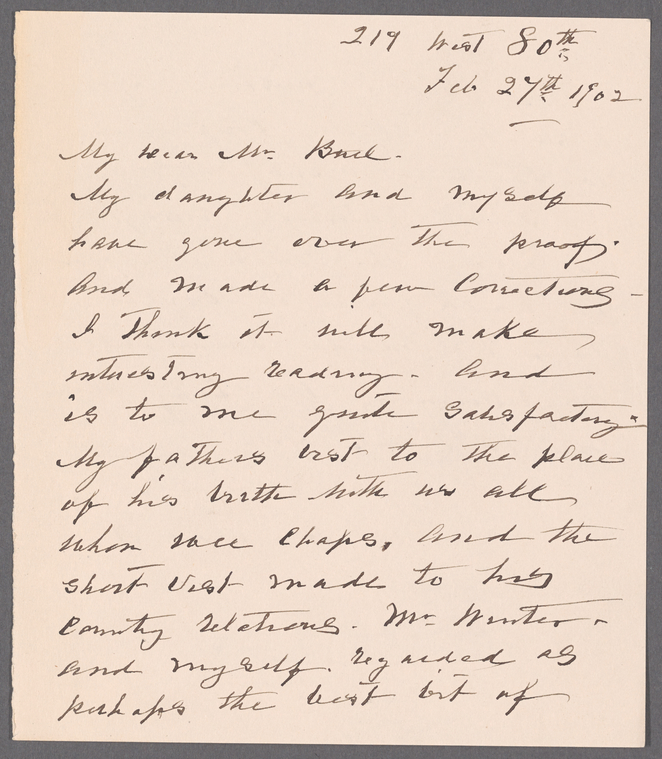 219 West 80th
Feb 27th 1902
My dear Mr. Buel.
My daughter and myself
have gone over the proof,
and made a few corrections -
I think it will make
interesting reading - and
is to me quite satisfactory.
My fathers visit to the place
of his birth with us all
when wee chaps, and the
short visit made to his
Country relations. Mr Winter -
and myself. regarded as
perhaps the best bit of